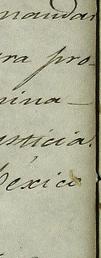 mandar
ra pro-
mina-
usticia.
éxico